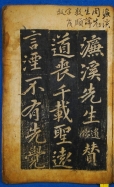 濂溪先生贊
道喪千載聖遠
言湮不有先覺